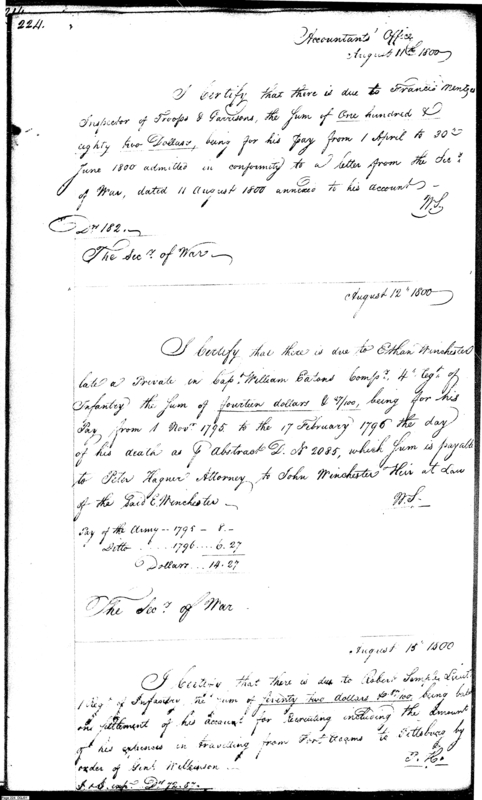 224.
Accountants Office
August 11th 1800
I Certify that there is due to Francis Mentges
Inspector of Troops & Garrisons, the Sum of One hundred &
eighty two Dollars, being for his Pay from 1 April to 30th
June 1800 admitted in conformity to a letter from the Secy
of War, dated 11 August 1800 annexed to his account
W.S.
Drs 182.
The Secy. of War
August 12th 1800
I Certify that there is due to Ethan Winchester
late a Private in Capt. William Eatons Compy. 4th Regt. of
Infantry the Sum of fourteen dollars & 27/100, being for his
Pay from 1 Novr. 1795 to the 17 February 1796 the day
of his death as Abstract D. No 2085, which Sum is payable
to Peter Hagner Attorney to John Winchester Heir at Law
of the Said E. Winchester
W.S.
Pay of the Army -- 1795 - 8. -
Ditto ..... 1796 .... 6.27
Dollars ... 14.27
The Secy. of War
August 15th 1800
I Certify that there is due to Robert Semple Lieut
1 Regt. of Infantry the Sum of Seventy two dollars 57/100, being
one settlement of his account for recruiting including the amount
of his expences in travelling from Fort Adams to Pittsburg by
order of Genl. Wilkinson ...
P.H.
Drs 72.57.